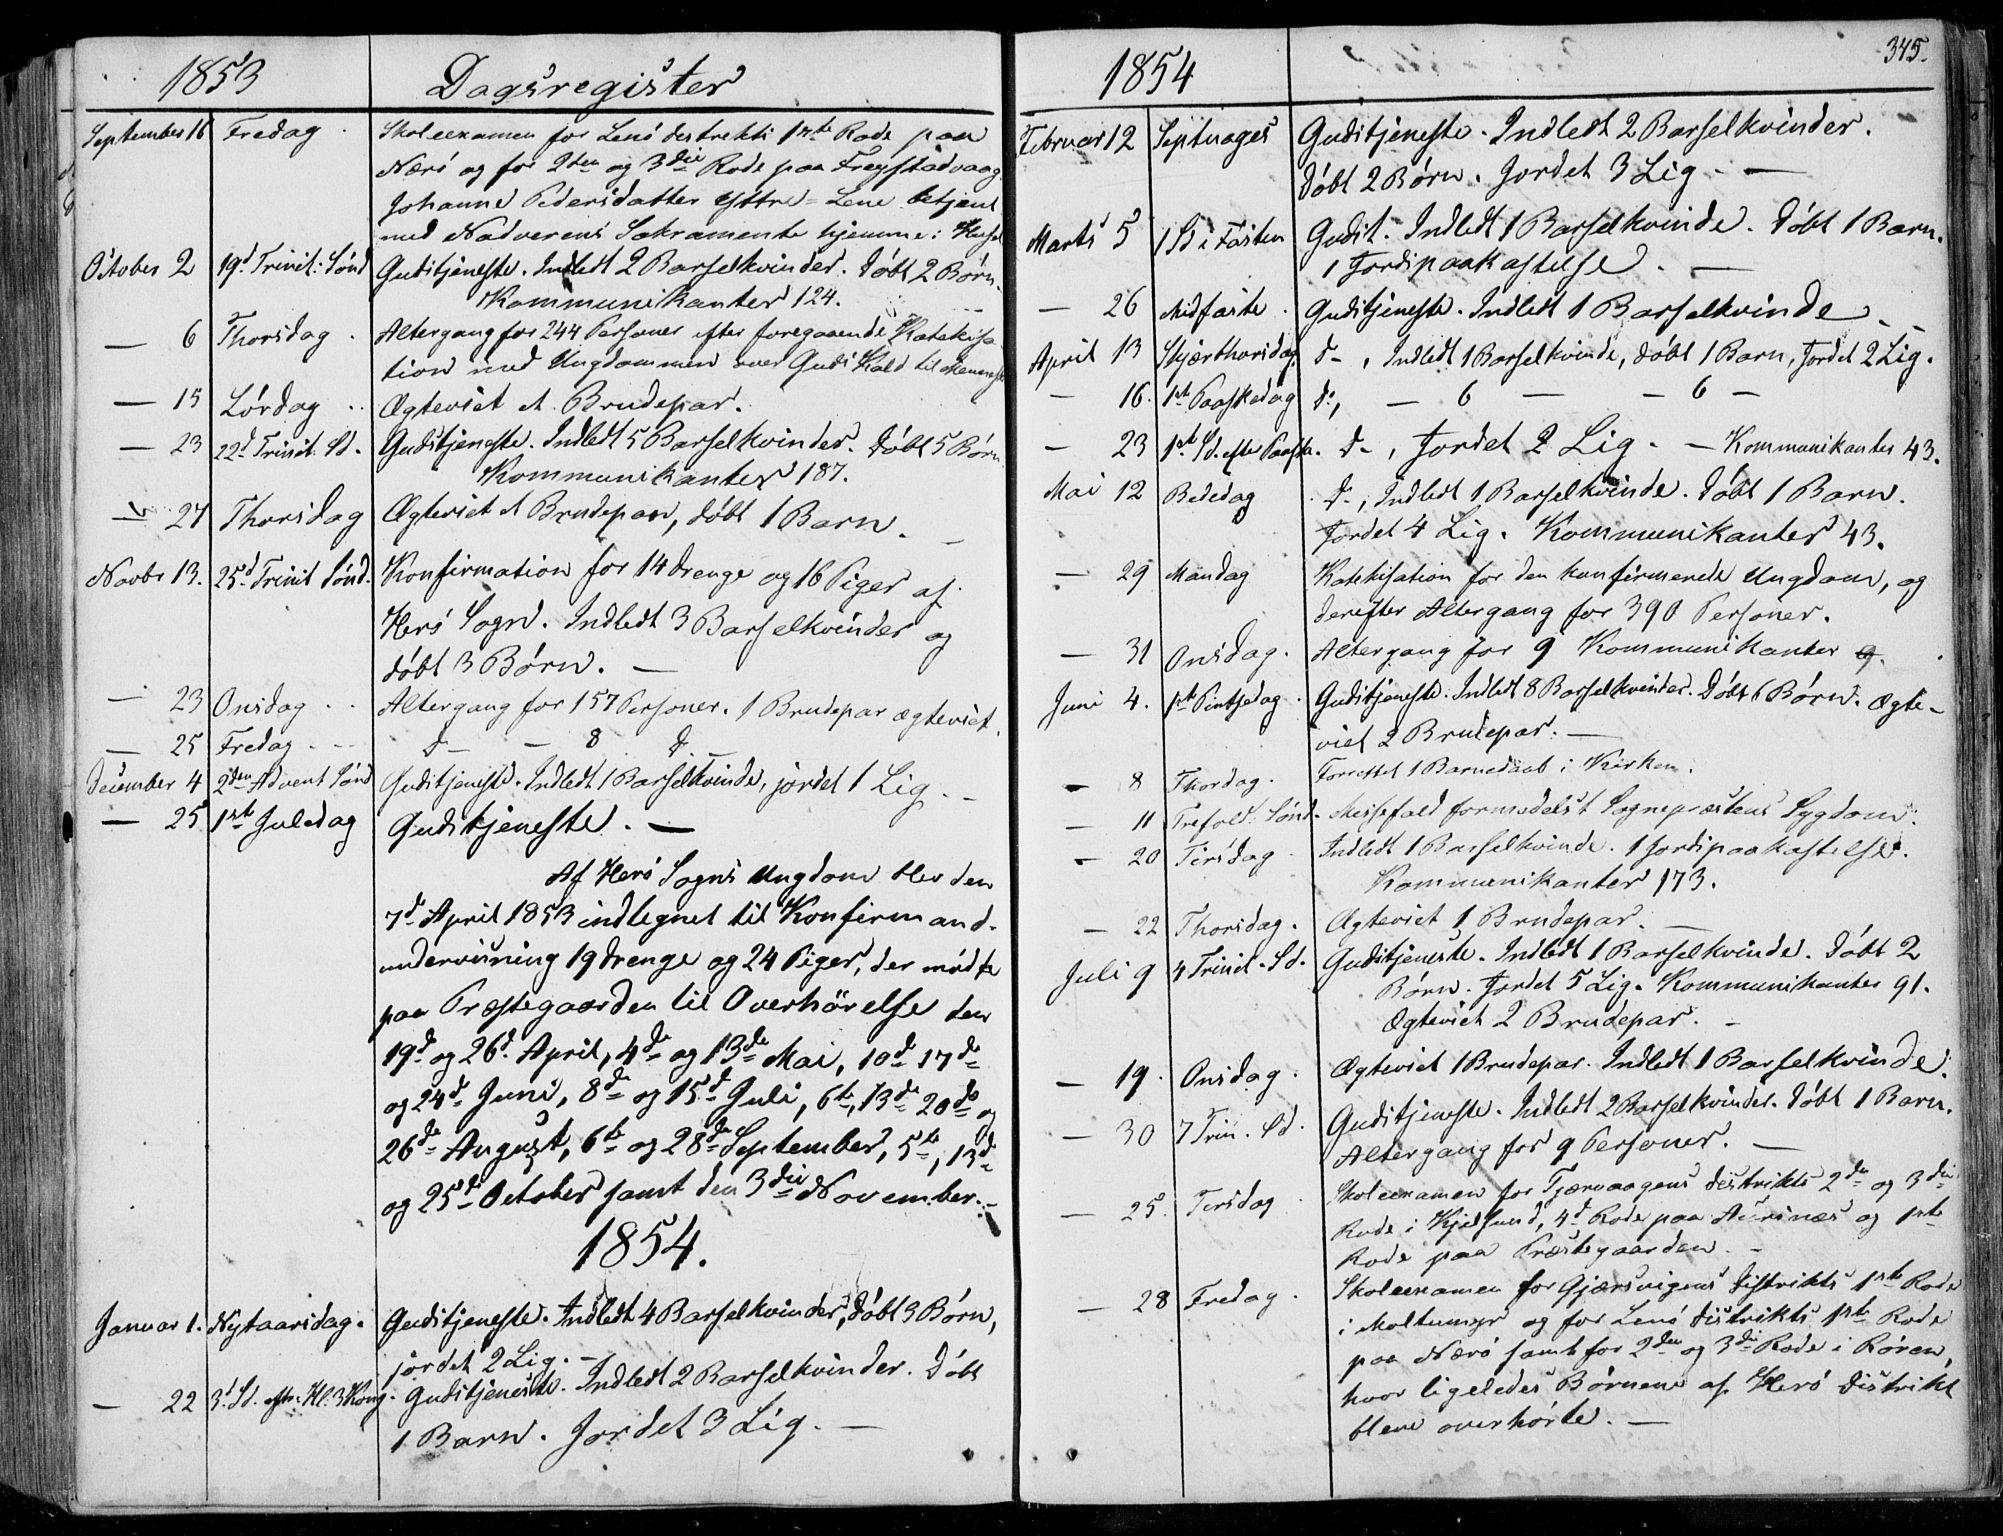 1853 Dagsregister
September 16 Fredag Skoleexamen for Lenö Destrikts 1ste Rode paa
Nærö og for 2den og 3die Rode paa Frøystadvaag
Johanne Pedersdatter Yttre-Lene betjent
med Nadverens Sakramente hjemme i Huset
October 2 19d Trinit: Sönd Gudstjeneste. Indledt 2 Barselkvinder. Döbt 2 Börn.
Kommunikanter 124.
— 6 Thorsdag Altergang for 244 Personer efter foregaaende Katekisa
tion med Ungdommen over Guds Kald til Mennesk
— 15 Lördag Ægteviet et Brudepar.
— 23 22d Trinit. Sd. Gudstjeneste. Indledt 5 Barselkvinder. Döbt 5 Börn
Kommunikanter 187.
— 27 Thorsdag Ægteviet et Brudepar, döbt 1 Barn.
Novbr 13. 25d Trinit Sönd. Konfirmation for 14 Drenge og 16 Piger af
Herö Sogn. Indledt 3 Barselkvinder og
döbt 3 Börn. —
— 23 Onsdag Altergang for 157 Personer. 1 Brudepar ægteviet.
— 25 Fredag d— — 8 d—
December 4 2den Advent Sönd Gudstjeneste. Indledt 1 Barselkvinde, jordet 1 Lig. —
— 25 1ste Juledag Gudstjeneste. —
Af Herö Sogns Ungdom blev den
7d April 1853 indtegnet til Konfirmand-
underviisning 19 Drenge og 24 Piger, der mödte
paa Præstegaarden til Overhörelse den
19d og 26d April, 4de og 13de Mai, 10de 17de
og 24d Juni, 8de og 15d Juli, 6te, 13de 20de og
26de August, 6te og 28de September, 5te, 13de
og 25d October samt den 3die November. —
1854.
Januar 1. Nytaarsdag. Gudstjeneste. Indledt 4 Barselkvinder, döbt 3 Börn,
jordet 2 Lig. —
— 22 3d. Sd. eftr. Hl. 3 Kong. Gudstjeneste. Indledt 2 Barselkvinder. Döbt
1 Barn. Jordet 3 Lig. —
1854 345.
Februar 12 Septuages Gudstjeneste. Indledt 2 Barselkvinder.
Döbt 2 Börn. Jordet 3 Lig. —
Marts 5 1 Sd i Fasten Gudst. Indledt 1 Barselkvinde. Döbt 1 Barn.
1 Jordspaakastelse. —
— 26 Midfaste Gudstjeneste. Indledt 1 Barselkvinde. —
April 13 Skjærthorsdag d—, Indledt 1 Barselkvinde, döbt 1 Barn, Jordet 2 Lig.
— 16. 1ste Paaskedag do, — 6 — — 6 —
— 23 1ste Sd. efter Paaske. d—, Jordet 2 Lig. — Kommunikanter 43.
Mai 12 Bededag d—, Indledt 1 Barselkvinde. Döbt 1 Barn.
Jordet 4 Lig. Kommunikanter 43.
— 29 Mandag Katekisation for den konfirmerede Ungdom, og
derefter Altergang for 390 Personer.
— 31 Onsdag. Altergang for 9 Kommunikanter
Juni 4. 1ste Pintsedag Gudstjeneste. Indledt 8 Barselkvinder. Döbt 6 Börn. Ægte-
viet 2 Brudepar. —
— 8 Thordag. Forrettet 1 Barnedaab i Kirken.
— 11 Trefold. Sönd. Messefald formedelst Sognepræstens Sygdom.
— 20 Tirsdag Indledt 1 Barselkvinde. 1 Jordspaakastelse.
Kommunikanter 173.
— 22 Thorsdag. Ægteviet 1 Brudepar. —
Juli 9 4 Trinit. Sd. Gudstjeneste. Indledt 1 Barselkvinde. Döbt 2
Börn. Jordet 5 Lig. Kommunikanter 91.
Ægteviet 2 Brudepar. —
— 19. Onsdag. Ægteviet 1 Brudepar. Indledt 1 Barselkvinde.
— 30 7 Trin. Sd. Gudstjeneste. Indledt 2 Barselkvinder. Döbt 1 Barn.
Altergang for 9 Personer. —
— 25. Tirsdag Skoleexamen for Tjørvaagens Destrikts 2den og 3die
Rode i Kjelsund, 4d Rode paa Aurvnæs og 1ste
Rode paa Præstegaarden. —
— 28 Fredag. Skoleexamen for Gjærsvigens Distrikts 1ste Rode
i Moltumyr og for Lenö Distrikts 1ste Rode
paa Nærö samt for 2den og 3die Rode i Rören,
hvor ligeledes Börnene af Herö Distrikt
bleve overhörte. —